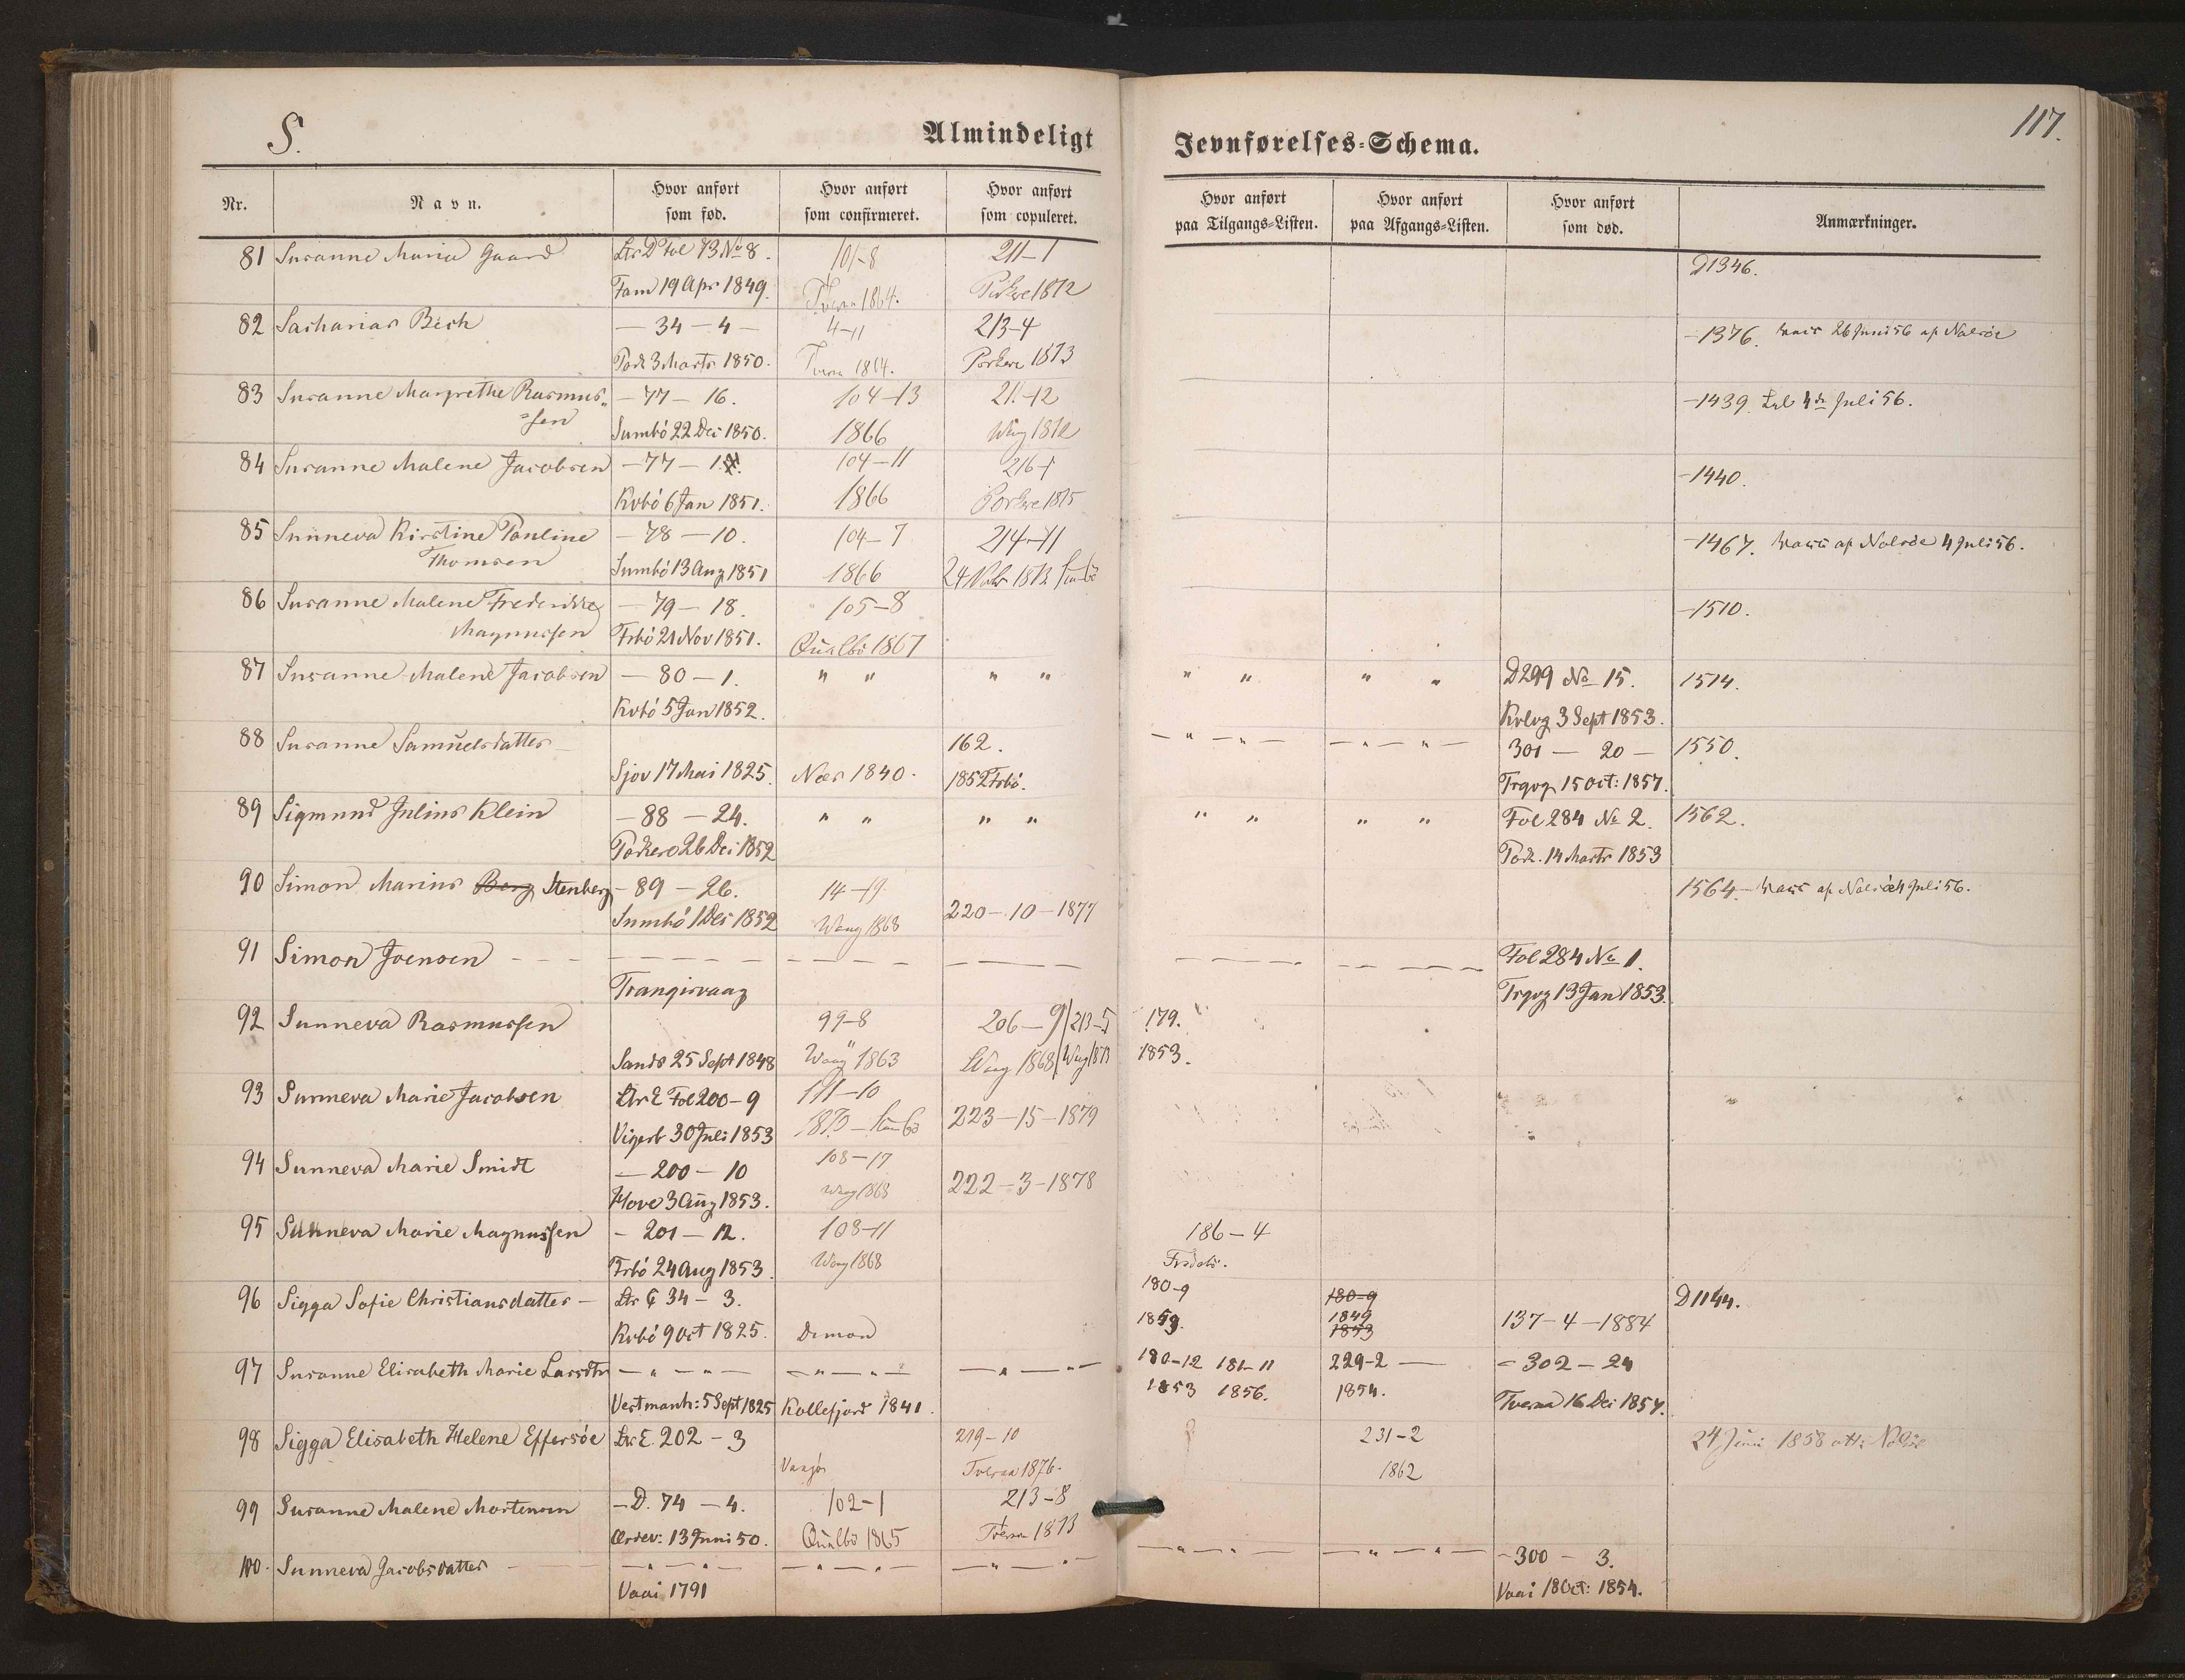 S.
Almindeligt
Jevnførelses-Schema.
117.
Nr.
Navn.
Hvor anført
som fød.
Hvor anført
som confirmeret.
Hvor anført
som copuleret.
Hvor anført
paa Tilgangs-Listen.
Hvor anført
paa Afgangs-Listen.
Hvor anført
som død.
Anmærkninger.
81 Susanne Maria Gaard Ltr D Fol 73 No 8. 101-8 211-1 D1346.
Fam 19 Apr 1849. 1864. 1872
82 Sacharias Bech — 34 — 4 — 4-11 213-4 -1376. 26 Juni 56 af Nolsöe
Pork 3 Marts 1850. 1864. Porkere 1873
83 Susanne Margrethe Rasmus- — 77 — 16. 104-13 211-12 -1439. 4de Juli 56.
=sen Sumbö 22 Dec 1850. 1866 Waag 1872
84 Susanne Malene Jacobsen — 77 — 104-11 216-1 -1440.
Kvbö 6 Jan 1851. 1866 Porkere 1875
85 Sunneva Kirstine Pauline — 78 — 10. 104-7 214-11 -1467. af Nolsöe 4 Juli 56.
Thomsen Sumbö 13 Aug 1851 1866 24 1873 Sumbö
86 Susanne Malene Frederikke — 79 — 18. 105-8 -1510.
Magnussen Frbö 21 Nov 1851. Qualbö 1867
87 Susanne Malene Jacobsen — 80 — 1. " " " " " " " " D299 No 15. 1514.
Kvbö 5 Jan 1852. Kvlvg 3 Sept 1853.
88 Susanne Samuelsdatter 162. — " — " — — " — " — 301 — 20 — 1550.
Sjov 17 Mai 1825. Næs 1840. 1852 Frbö. Trgvg 15 Oct: 1857.
89 Sigmund Julius Klein — 88 — 24. " " " " " " " " Fol 284 No 2. 1562.
Porkere 26 Dec 1852 Pork. 14 Marts 1853
90 Simon Marius Berg Stenberg — 89 — 26. 14-19 1564 — af Nolsöe 4 Juli 56.
Sumbö 1 Dec 1852 Waag 1868 220-10-1877
91 Simon Joensen — — — — — — — — — — — — — — Fol 284 No 1.
Trangisvaag Trgvg 13 Jan 1853.
92 Sunneva Rasmussen 99-8 206-9/213-5 179.
Sands 25 Sept 1848 Waag 1863 Waag 1868/Waag 1873 1853.
93 Sunneva Marie Jacobsen Ltr E Fol 200-9 111-10
Vigerb 30 Juli 1853 1873 — Sumbö 223-15-1879
94 Sunneva Marie Smidt — 200 — 10 108-17
Hove 3 Aug 1853. Waag 1868 222-3-1878
95 Sunneva Marie Magnussen — 201 — 12. 108-11 186-4
Frbö 24 Aug 1853. Waag 1868 Frodebö.
96 Sigga Sofie Christiansdatter — Ltr C 34 — 3. 180-9 180-9 D1144.
Kvbö 9 Oct 1825. Dimon 1853. 1849 1853 137-4-1884
97 Susanne Elisabeth Marie Larsdtr — " — " — — " — " — — " — " — 180-12 181-11 229-2 — — 302 — 24
Vestmanh: 5 Sept 1825 Kollefjord 1841. 1853 1856. 1854. Tveraa 16 Dec 1857.
98 Sigga Elisabeth Helene Effersöe Ltr E. 202-3 219-10 231-2 24 Juni 1858 att: Nolsöe
Vaagö Tveraa 1876. 1862
99 Susanne Malene Mortensen — D. 74 — 4. 102-1 213-8
Ördev: 13 Juni 50. Qualbö 1865 Tveraa 1873
100. Sunneva Jacobsdatter — " — " — — " — " — — " — " — — " — " — — " — " — — 300 — 3.
Vaai 1791 Vaai 18 Oct: 1854.